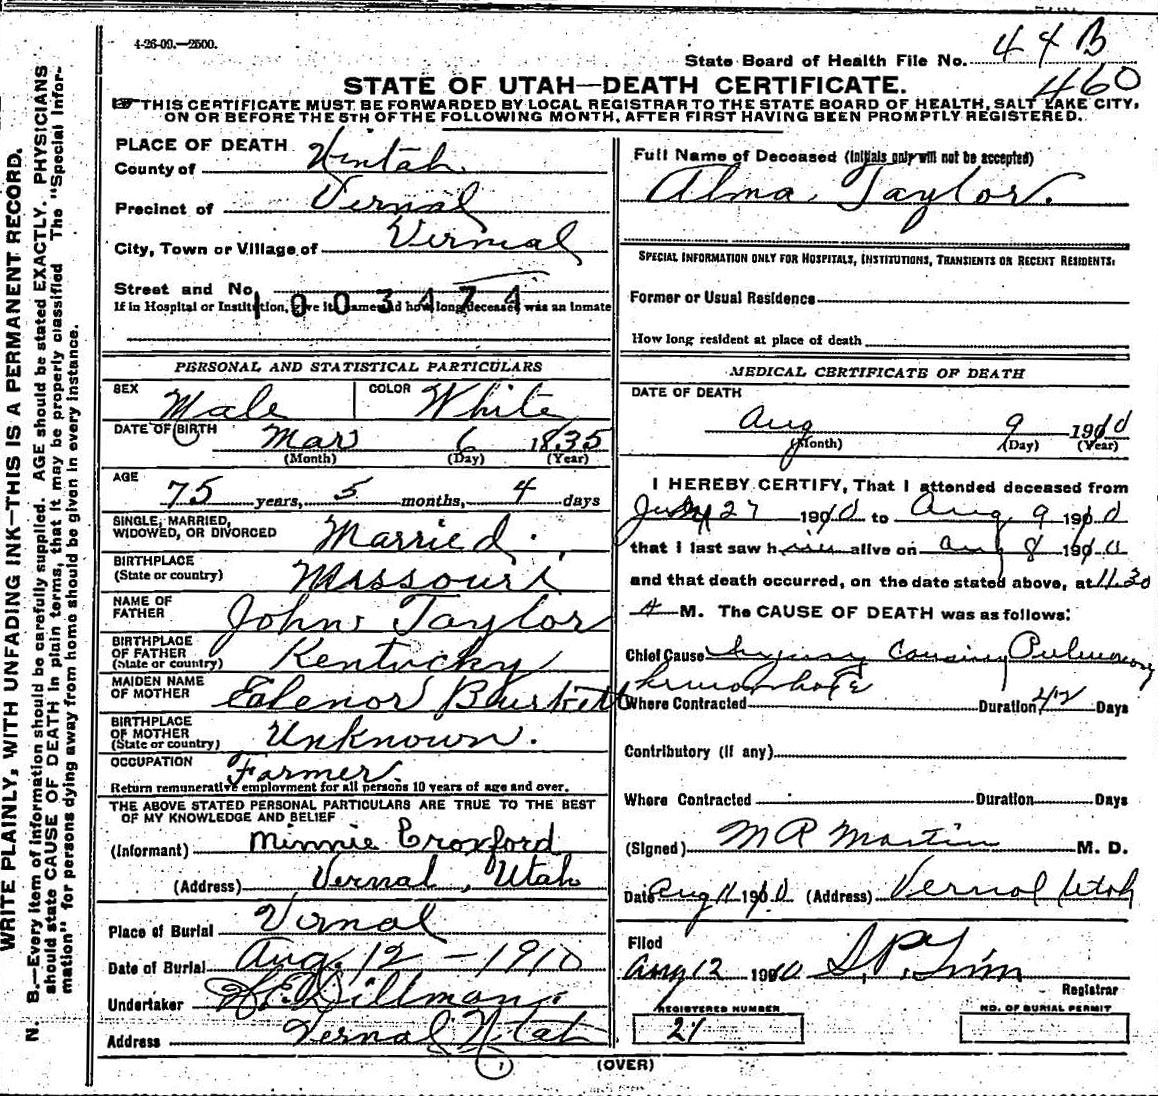 4-26-09.—2500.
State Board of Health File No. 44 B
460
STATE OF UTAH—DEATH CERTIFICATE.
THIS CERTIFICATE MUST BE FORWARDED BY LOCAL REGISTRAR TO THE STATE BOARD OF HEALTH, SALT LAKE CITY,
ON OR BEFORE THE 5TH OF THE FOLLOWING MONTH, AFTER FIRST HAVING BEEN PROMPTLY REGISTERED.
WRITE PLAINLY, WITH UNFADING INK—THIS IS A PERMANENT RECORD.
N. B.—Every item of information should be carefully supplied. AGE should be stated EXACTLY. PHYSICIANS
should state CAUSE OF DEATH in plain terms, that it may be properly classified. The "Special Infor-
mation" for persons dying away from home should be given in every instance.
PLACE OF DEATH
County of Uintah
Precinct of Vernal
City, Town or Village of Vernal
Street and No.
1003474
If in Hospital or Institution, give its name and how long deceased was an inmate
PERSONAL AND STATISTICAL PARTICULARS
SEX Male COLOR White
DATE OF BIRTH Mar 6 1835
(Month) (Day) (Year)
AGE
75 years, 5 months, 4 days
SINGLE, MARRIED,
WIDOWED, OR DIVORCED Married
BIRTHPLACE
(State or country) Missouri
NAME OF
FATHER John Taylor
BIRTHPLACE
OF FATHER
(State or country) Kentucky
MAIDEN NAME
OF MOTHER Ealenor Burkett
BIRTHPLACE
OF MOTHER
(State or country) Unknown.
OCCUPATION Farmer.
Return remunerative employment for all persons 10 years of age and over.
THE ABOVE STATED PERSONAL PARTICULARS ARE TRUE TO THE BEST
OF MY KNOWLEDGE AND BELIEF
(Informant) Minnie Croxford
(Address) Vernal, Utah
Place of Burial Vernal
Date of Burial Aug. 12 - 1910
Undertaker Dillman
Address Vernal Utah
Full Name of Deceased (Initials only will not be accepted)
Alma Taylor.
SPECIAL INFORMATION ONLY FOR HOSPITALS, INSTITUTIONS, TRANSIENTS OR RECENT RESIDENTS:
Former or Usual Residence
How long resident at place of death
MEDICAL CERTIFICATE OF DEATH
DATE OF DEATH
Aug 9 1910
(Month) (Day) (Year)
I HEREBY CERTIFY, That I attended deceased from
July 27 1910 to Aug 9 1910
that I last saw him alive on Aug 8 1910
and that death occurred, on the date stated above, at 11.30
A M. The CAUSE OF DEATH was as follows:
Chief Cause Injury Causing Pulmonary
hemorrhage
Where Contracted Duration 42 Days
Contributory (if any)
Where Contracted Duration Days
(Signed) M R Martin M. D.
Date Aug 11 1910 (Address) Vernal Utah
Filed
Aug 12 1910
Registrar
REGISTERED NUMBER
21
NO. OF BURIAL PERMIT
(OVER)